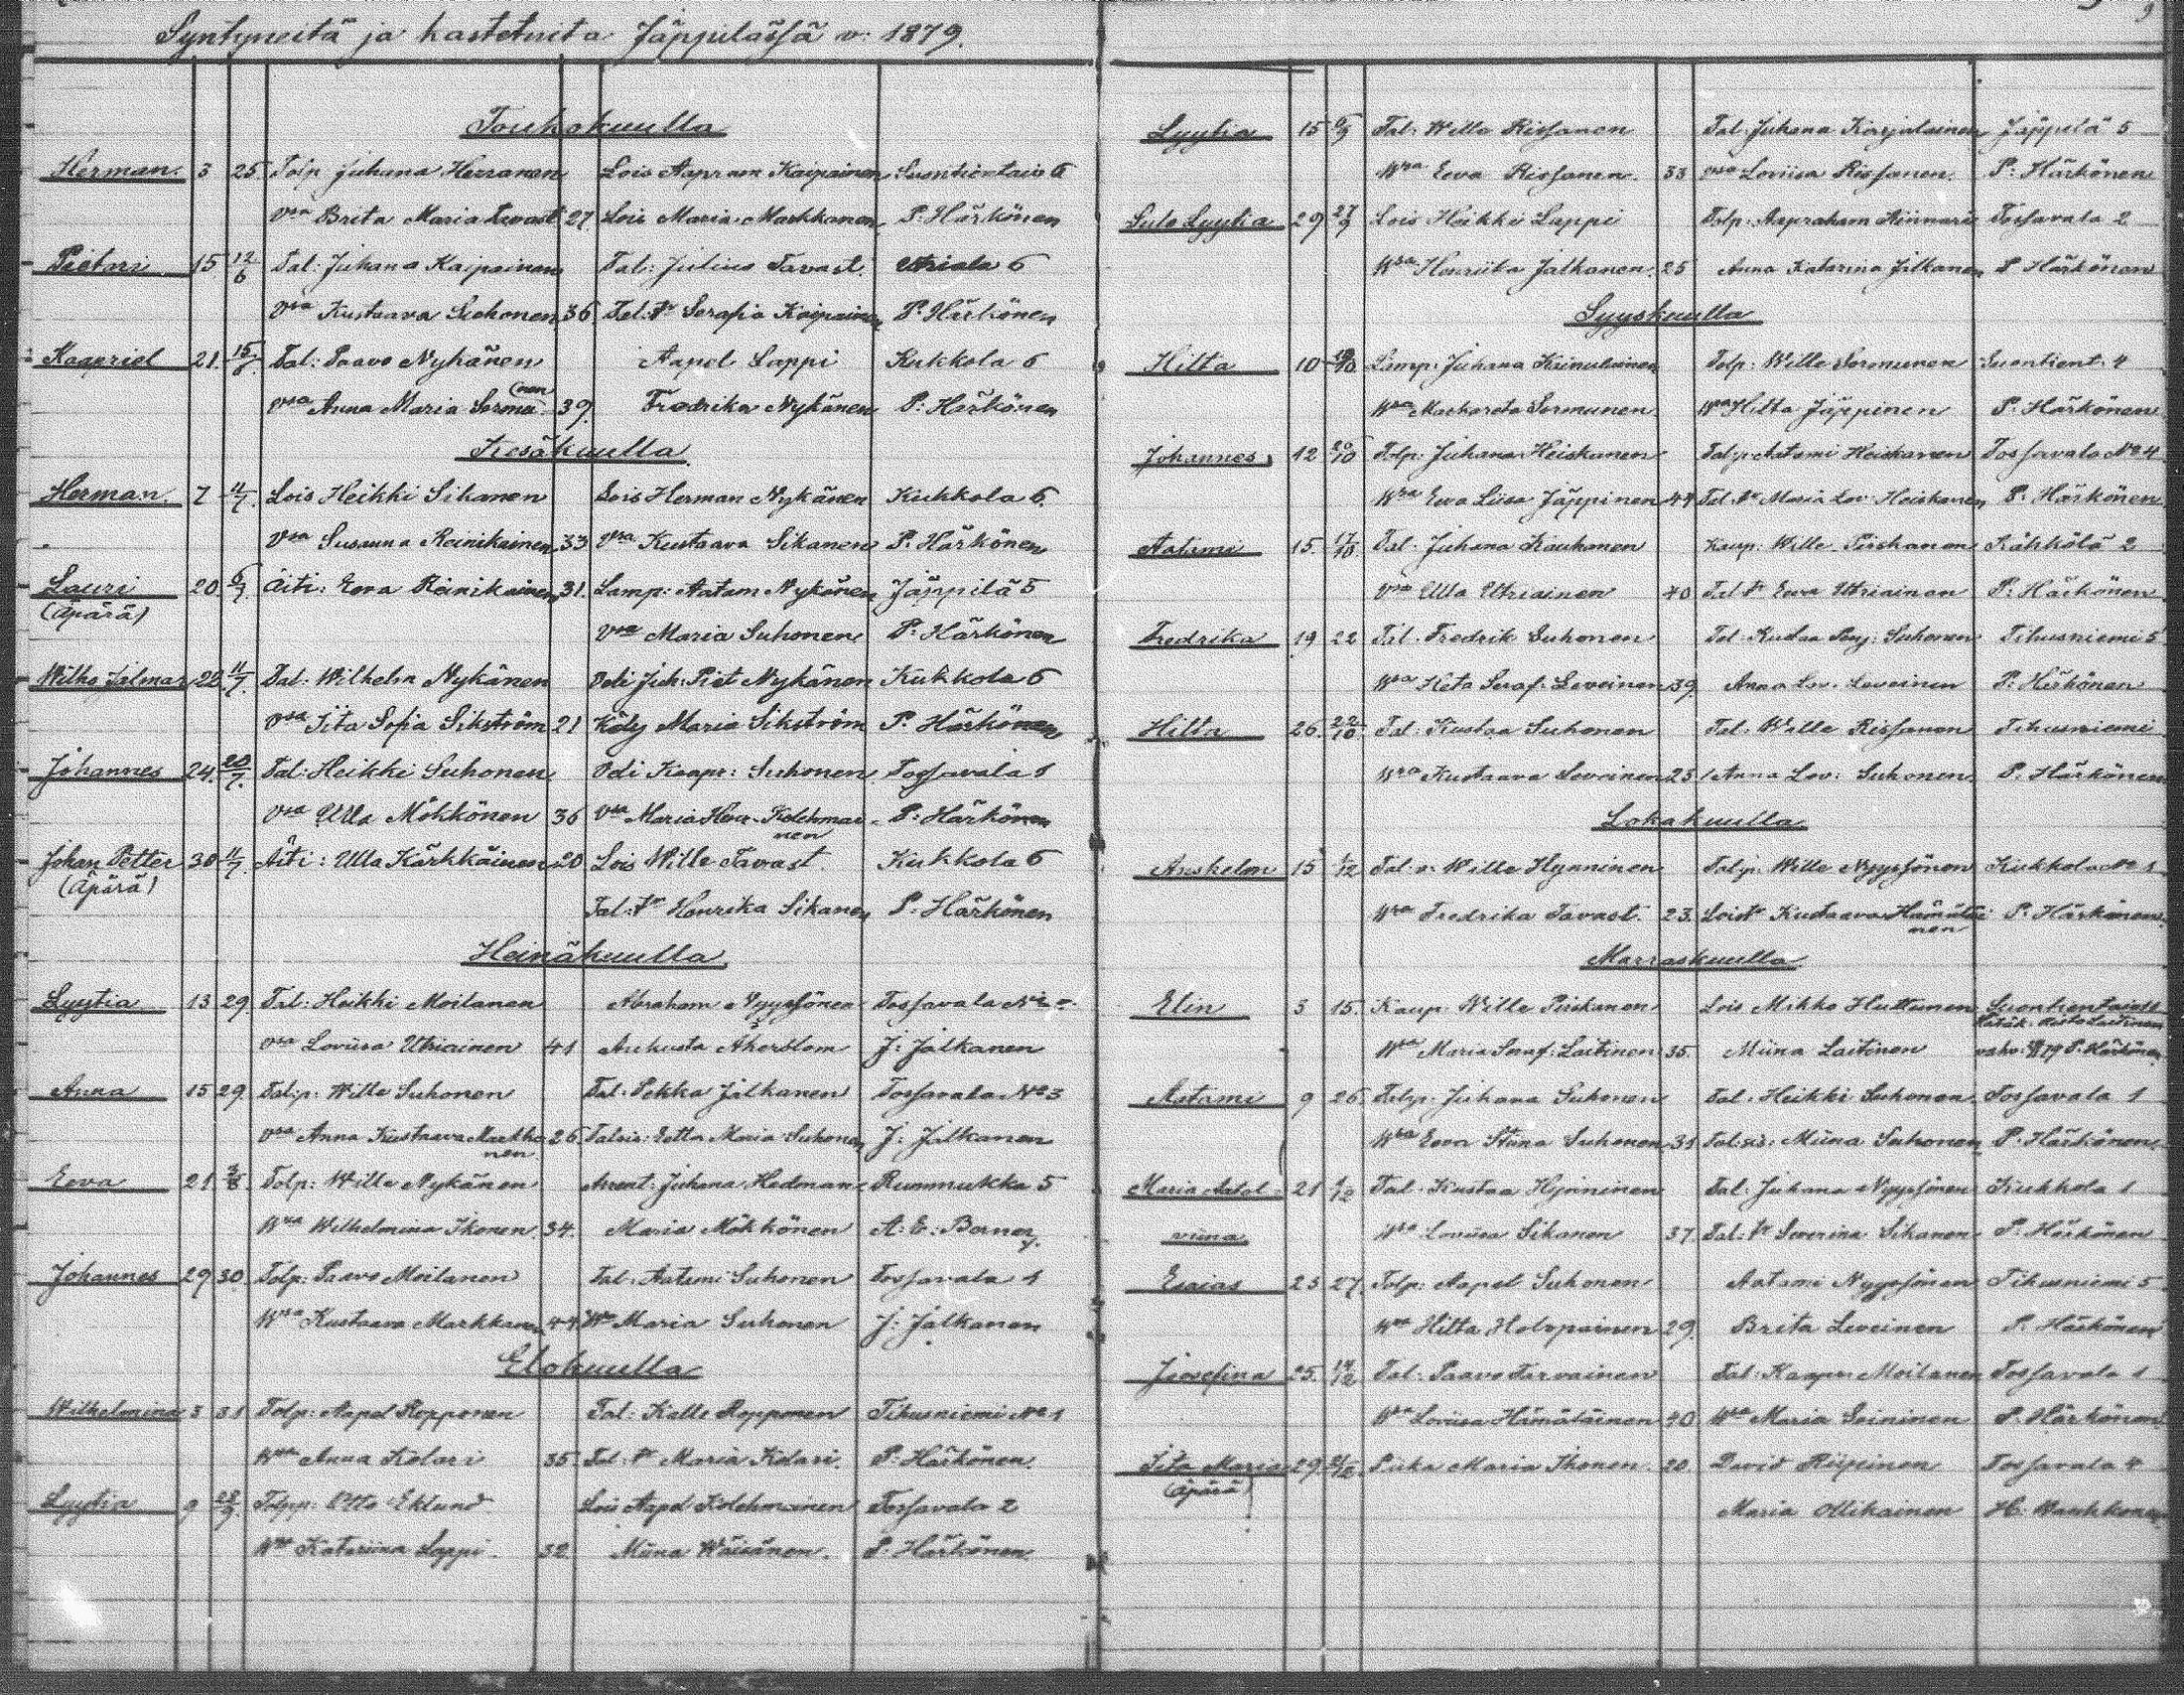 Syntyneitä ja kastetuita Jäppilässä v: 1879.
Toukokuulla
Herman. 3 25 Tolp. Juhana Hersanen Lois Aapraam Kaipainen Suontientaus 6
Vsa Brita Maria Tavast 27. Lois Maria Markkanen P. Härkönen
Pietari 15 12/6 Tal: Juhana Kaipainen Tal: Julius Tavast. Utriala 6
Vsa Kustaava Suhonen 36. Tal: tr Serafia Kaipainen P. Härkönen
Kaapriel 21. 15/6. Tal: Paavo Nykänen Aapel Lappi Kukkola 6
Vsa Anna Maria Sormu(nen 39. Fredrika Nykänen P. Härkönen
Kesäkuulla
Herman. 7 11/7. Lois Heikki Sikanen Lois Herman Nykänen Kukkola 6.
Vsa Susanna Reinikainen 33 Vsa Kustaava Sikanen P. Härkönen
Lauri 20 6/7. Äiti: Eeva Reinikainen 31. Lamp: Aatam Nykänen Jäppilä 5
(Äpärä) Vsa Maria Suhonen P. Härkönen
Wilho Jalmar 22. 11/7. Tal: Wilhelm Nykänen Veli Juh: Piet Nykänen Kukkola 6
Vsa Iita Sofia Sikström 21 Käly Maria Sikström P. Härkönen
Johannes 24. 20/7. Tal: Heikki Suhonen Veli Kaapr: Suhonen Tossavala 1
Vsa Ulla Mökkönen 36 Vsa Maria Hen. Kolehmai- P. Härkönen
nen
Johan Petter 30 11/7. Äiti: Ulla Kärkkäinen 20 Lois Wille Tavast Kukkola 6
(Äpärä)
Tal: tr Henrika Sikanen P. Härkönen
Heinäkuulla
Lyytia 13 29. Tal: Heikki Moilanen Abraham Nyyssönen Tossavala No
Vsa Loviisa Utriainen 41 Auhusta Åkerblom J: Jalkanen
Anna 15 29. Talp: Wille Suhonen Tal: Pekka Jalkanen Tossavala No 3
Vsa Anna Kustaava Markka 26 Talois: Eetla Maria Suhonen J: Jalkanen
nen
Eeva 21. 3/8. Tolp: Wille Nykänen Arent. Juhana Hedman Rummukka 5
Wsa Wilhelmina Ikonen. 34. Maria Mökkönen A: E: Borney.
Johannes 29 30 Tolp: Paavo Moilanen Tal: Aatami Suhonen Tossavala 1
Wsa Kustaava Markkanen 44. Wsa Maria Suhonen J: Jalkanen
Elokuulla
Wilhelmina 3 31 Tolp: Aapel Ropponen Tal: Kalle Ropponen Tihusniemi No 1
Wsa Anna Kolari 35. Tal: tr Maria Kolari. P. Härkönen.
Lyytia 9 28/9. Tolpp: Otto Eklund Lois Aapel Kolehmainen Tossavala 2
Wsa Katariina Lappi. 32. Miina Wäisänen. P. Härkönen.
9
Lyytia 15 6/9 Tal: Wille Rissanen Tal: Juhana Karjalainen Jäppilä 5
Wsa Eeva Rissanen. 33 vsa Loviisa Rissanen. P. Härkönen
Lulo Lyytia 29 27/9 Lois Heikki Lappi Tolp: Aapraham Kinnari Tossavala 2
Wsa Henriika Jalkanen. 25 Anna Katarina Jalkanen P. Härkönen
Syyskuulla
Hilta 10 19/10. Lamp: Juhana Kainulainen Tolp: Wille Sormunen Suontient. 4
Wsa Markareta Sormunen Wsa Hilta Jäppinen P. Härkönen
Johannes. 12 20/10 Tolp: Juhana Heiskanen Talp: Aatami Heiskanen Tossavala No 4
Wsa Eva Liisa Jäppinen 44 Tal tr Maria Lov: Heiskanen P. Härkönen.
Aatami 15. 17/10 Tal: Juhana Kauhanen Kaup: Wille Pirskanen Kähkölä 2
Vsa Ulla Utriainen 40 Tal tr Eeva Utriainen P. Härkönen
Fredrika 19 22 Tal. Fredrik Suhonen Tal. Kustaa Suhonen Tihusniemi 5
Wsa Heta Seraf: Leveinen 39. Anna Lov. Leveinen P. Härkönen
Hilta 26. 22/10. Tal: Kustaa Suhonen Tal: Wille Rissanen Tihusniemi
Wsa Kustaava Leveinen 25 Anna Lov: Suhonen P. Härkönen
Lokakuulla
Anshelm 15 1/12 Tal: Wille Hynninen Talp: Wille Nyyssönen Kukkola No 1
Wsa Fredrika Tavast. 23. Lois tr Kustaava Hämäläi P. Härkönen.
nen
Marraskuulla
Elin 3 15. Kaup: Wille Pirskanen Lois Mikko Huttunen Suontientaus
Wsa Maria Seraf: Laitinen 35. Miina Laitinen P. Härkönen
Aatami 9 26 Tolp: Juhana Suhonen Tal. Heikki Suhonen Tossavala 1
Wsa Eeva Stiina Suhonen 31 Tal: Miina Suhonen P. Härkönen.
Maria Aatol- 21 1/12 Tal. Kustaa Hynninen Tal: Juhana Nyyssönen Kukkola 1
viina Wsa Loviisa Sikanen 37 Tal: tr Severina Sikanen P. Härkönen
Esaias 23 27. Tolp: Aapel Suhonen Aatami Nyyssönen Tihusniemi 5
Wsa Hilta Holopainen 29. Brita Leveinen P. Härkönen
Joosefina 25. 14/12 Tal: Paavo Tarvainen Tal: Kaapr: Moilanen Tossavala 1
Wsa Loviisa Hämäläinen 40 Wsa Maria Soininen P. Härkönen
Iita Maria 29. Piika Maria Ikonen. 20. David Riipinen Tossavala 4
(Äpärä)
Maria Ollikainen H. Markkanen